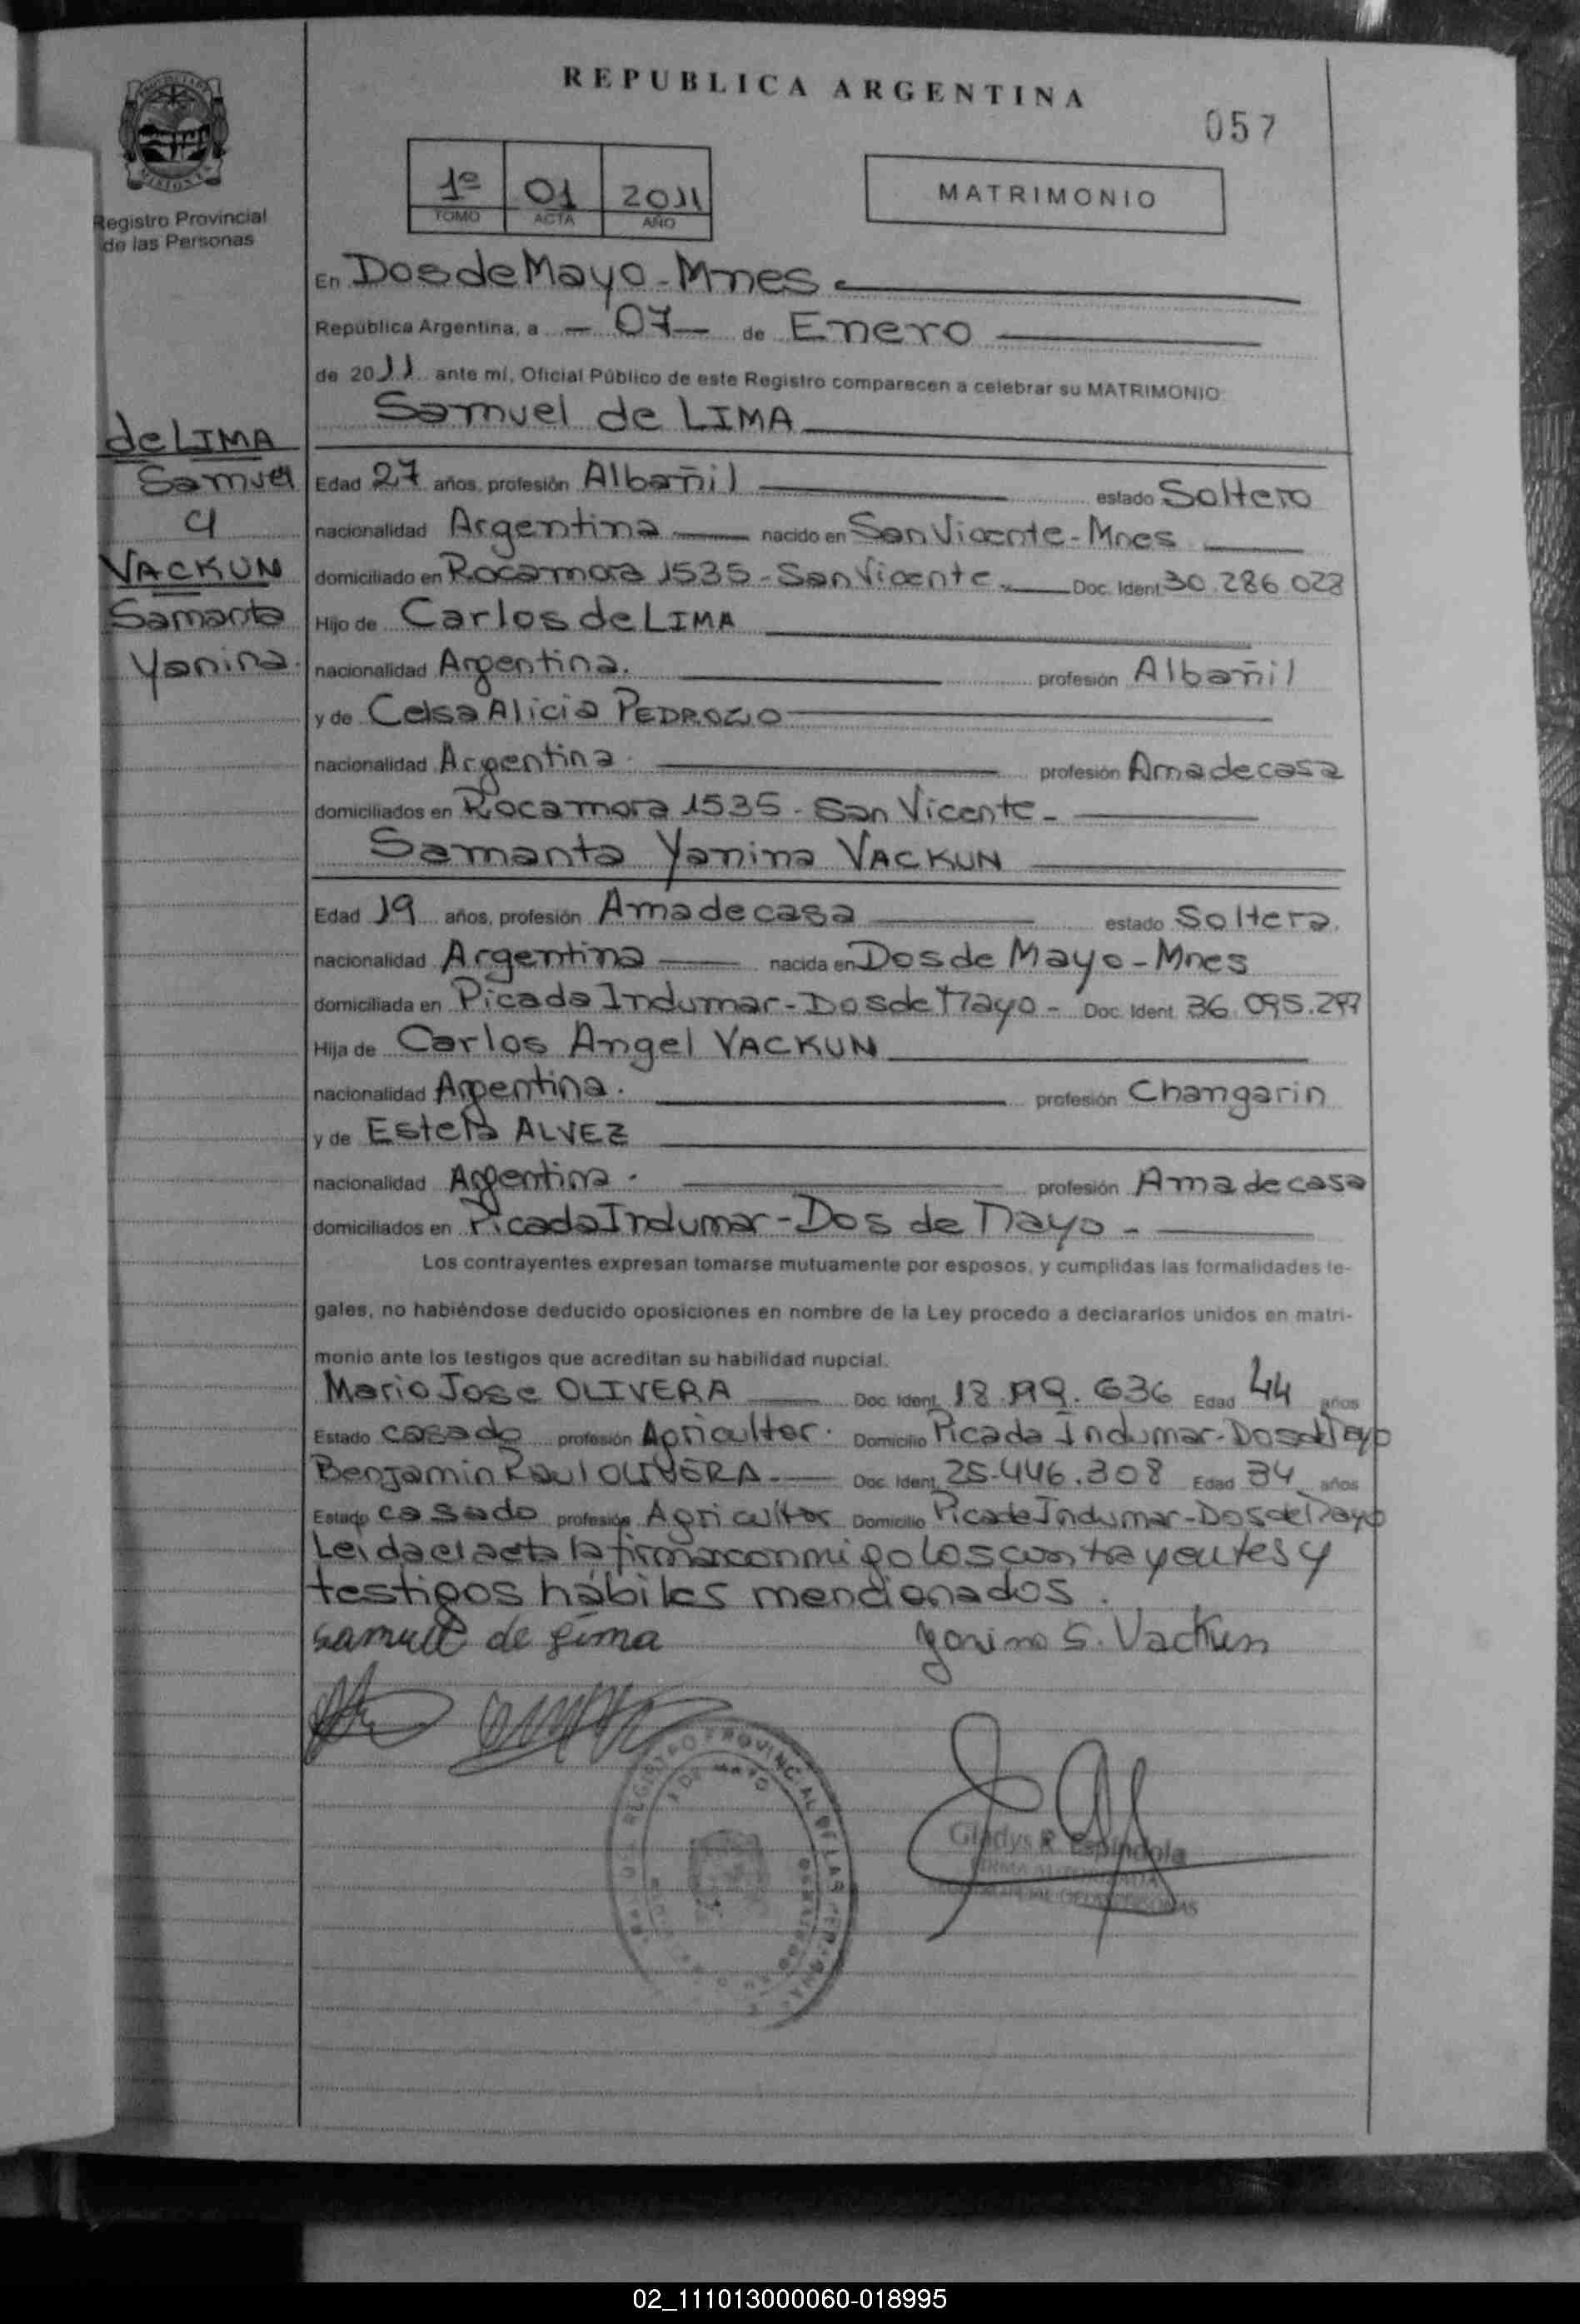 REPUBLICA ARGENTINA
057
Registro Provincial
de las Personas
1º 01 2011
TOMO ACTA AÑO
MATRIMONIO
En Dos de Mayo - Mnes
República Argentina, a - 07 - de Enero
de 2011 ante mí, Oficial Público de este Registro comparecen a celebrar su MATRIMONIO:
Samuel de LIMA
de LIMA
Samuel
y
VACKUN
Samanta
Yanina.
Edad 27 años, profesión Albañil estado Soltero
nacionalidad Argentina nacido en San Vicente - Mnes
domiciliado en Rocamora 1535 - San Vicente Doc. Ident. 30.286.028
Hijo de Carlos de LIMA
nacionalidad Argentina. profesión Albañil
y de Celsa Alicia PEDROZO
nacionalidad Argentina. profesión Ama de casa
domiciliados en Rocamora 1535 - San Vicente -
Samanta Yanina VACKUN
Edad 19 años, profesión Ama de casa estado Soltera.
nacionalidad Argentina nacida en Dos de Mayo - Mnes
domiciliada en Picada Indumar - Dos de Mayo - Doc. Ident. 36.095.297
Hija de Carlos Angel VACKUN
nacionalidad Argentina. profesión Changarin
y de Estela ALVEZ
nacionalidad Argentina. profesión Ama de casa
domiciliados en Picada Indumar - Dos de Mayo -
Los contrayentes expresan tomarse mutuamente por esposos, y cumplidas las formalidades le-
gales, no habiéndose deducido oposiciones en nombre de la Ley procedo a declararlos unidos en matri-
monio ante los testigos que acreditan su habilidad nupcial.
Mario Jose OLIVERA Doc. Ident. Edad 44 años
Estado casado profesión Agricultor. Domicilio Picada Indumar - Dos de Mayo
Benjamin Raul OLIVERA Doc. Ident. 25.446.308 Edad 34 años
Estado casado profesión Agricultor Domicilio Picada Indumar - Dos de Mayo
Leida el acta la firman conmigo los contrayentes y
testigos hábiles mencionados.
samuel de lima Yanina S. Vackun
REGISTRO PROVINCIAL DE LAS PERSONAS
Gladys R. Espindola
FIRMA AUTORIZADA
02_111013000060-018995